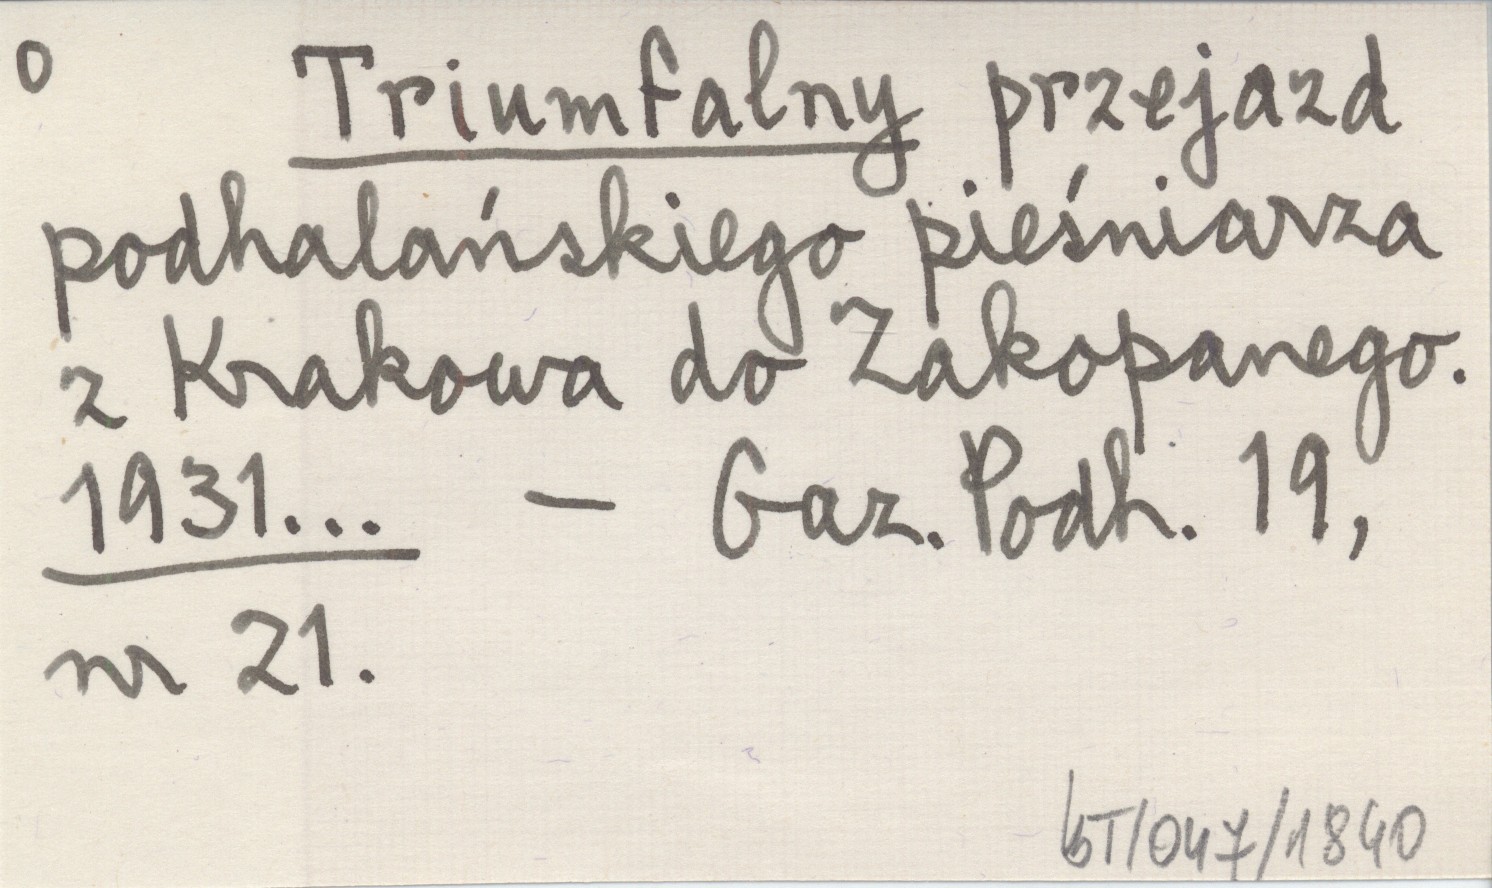 o Triumfalny przejazd
podhalańskiego pieśniarza
z Krakowa do Zakopanego.
1931... — Gaz. Podh. 19,
nr 21.
bT/047/1840